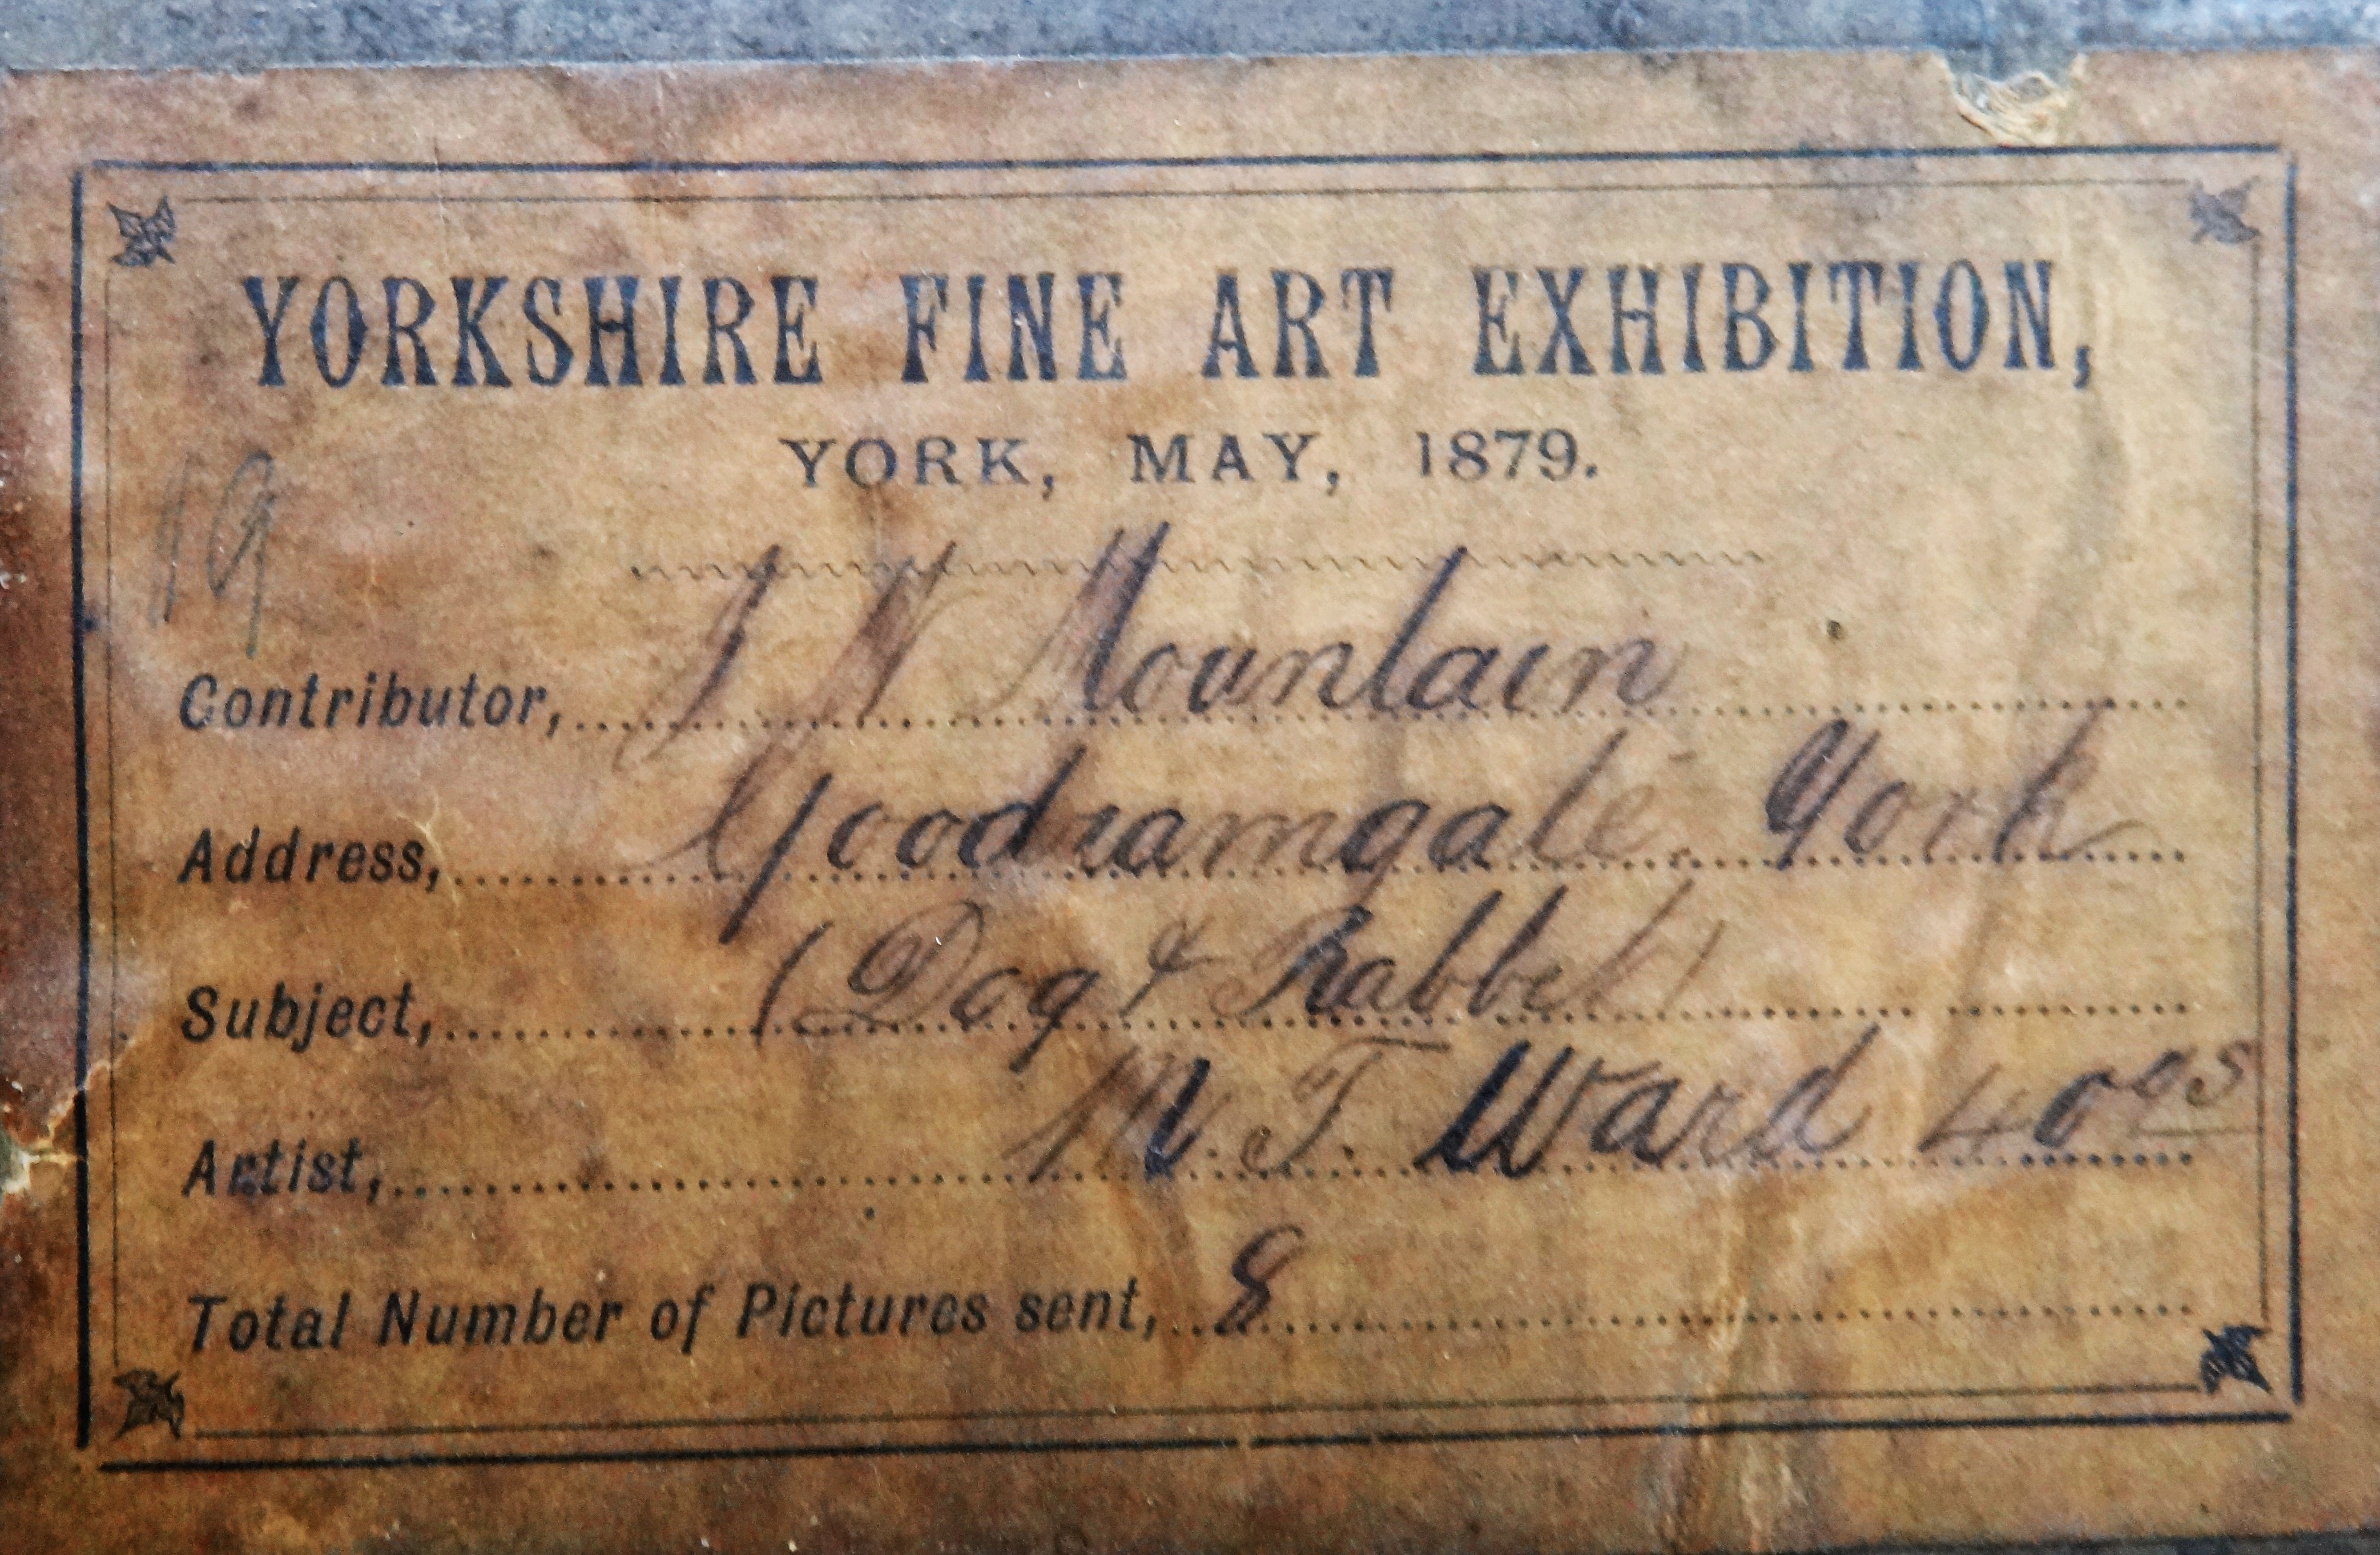 YORKSHIRE FINE ART EXHIBITION,
YORK, MAY, 1879.
19
Contributor, J W Mountain
Address, Goodramgate. York
Subject, (Dog & Rabbet)
Artist, M. T. Ward 40gs
Total Number of Pictures sent, 8